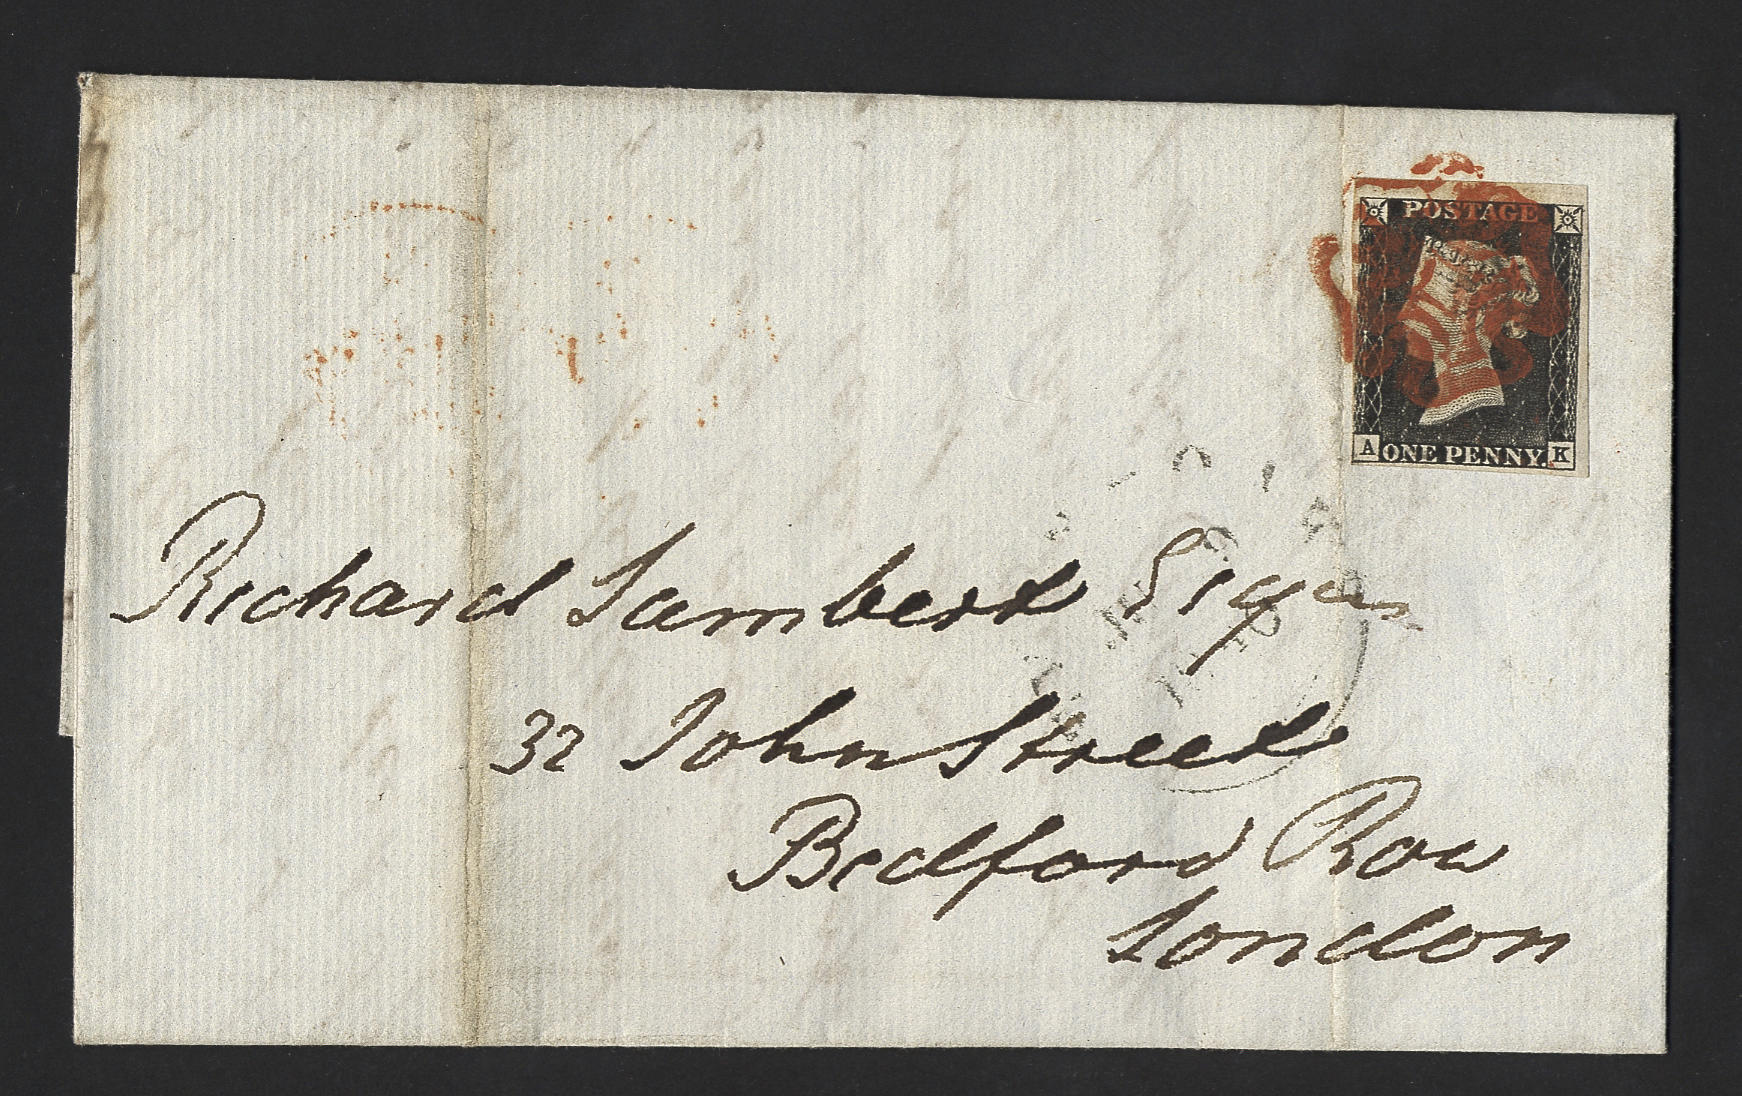 POSTAGE
A ONE PENNY. K
Richard Lambert Esqr
32 John Street
Bedford Row
London